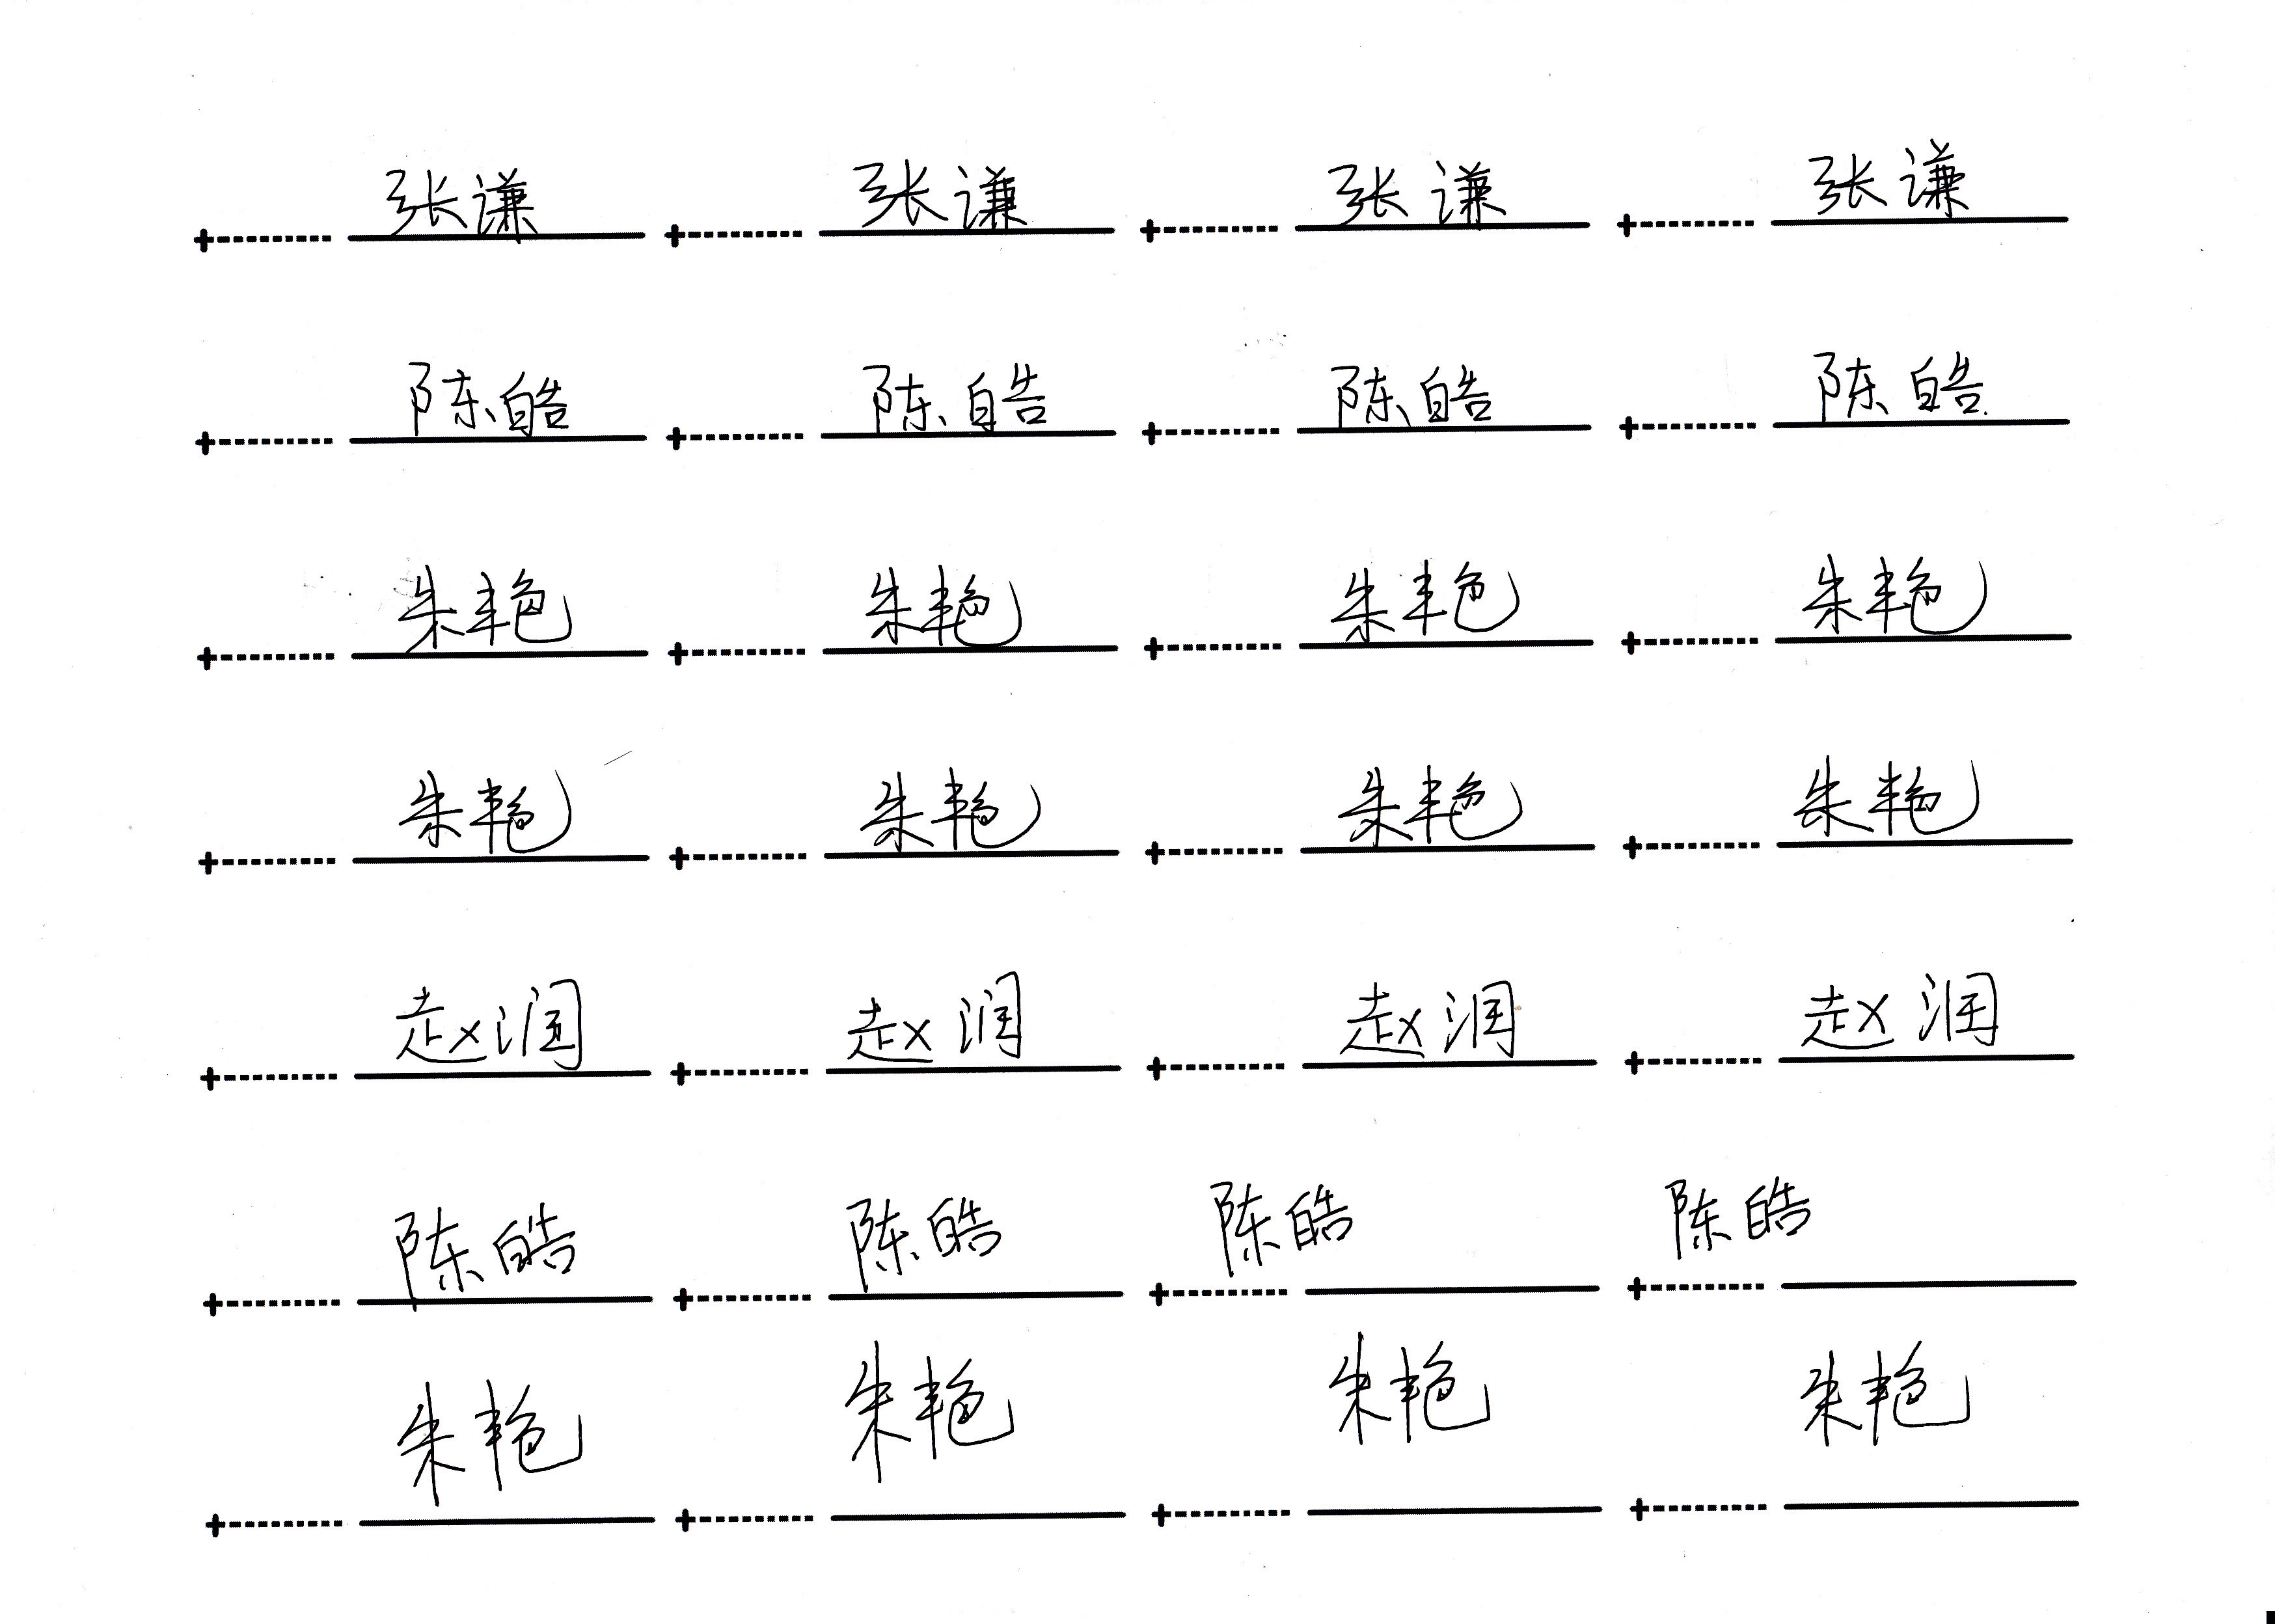 张谦 张谦 张谦 张谦
陈皓 陈皓 陈皓 陈皓
朱艳 朱艳 朱艳 朱艳
朱艳 朱艳 朱艳 朱艳
赵润 赵润 赵润 赵润
陈皓 陈皓 陈皓 陈皓
朱艳 朱艳 朱艳 朱艳